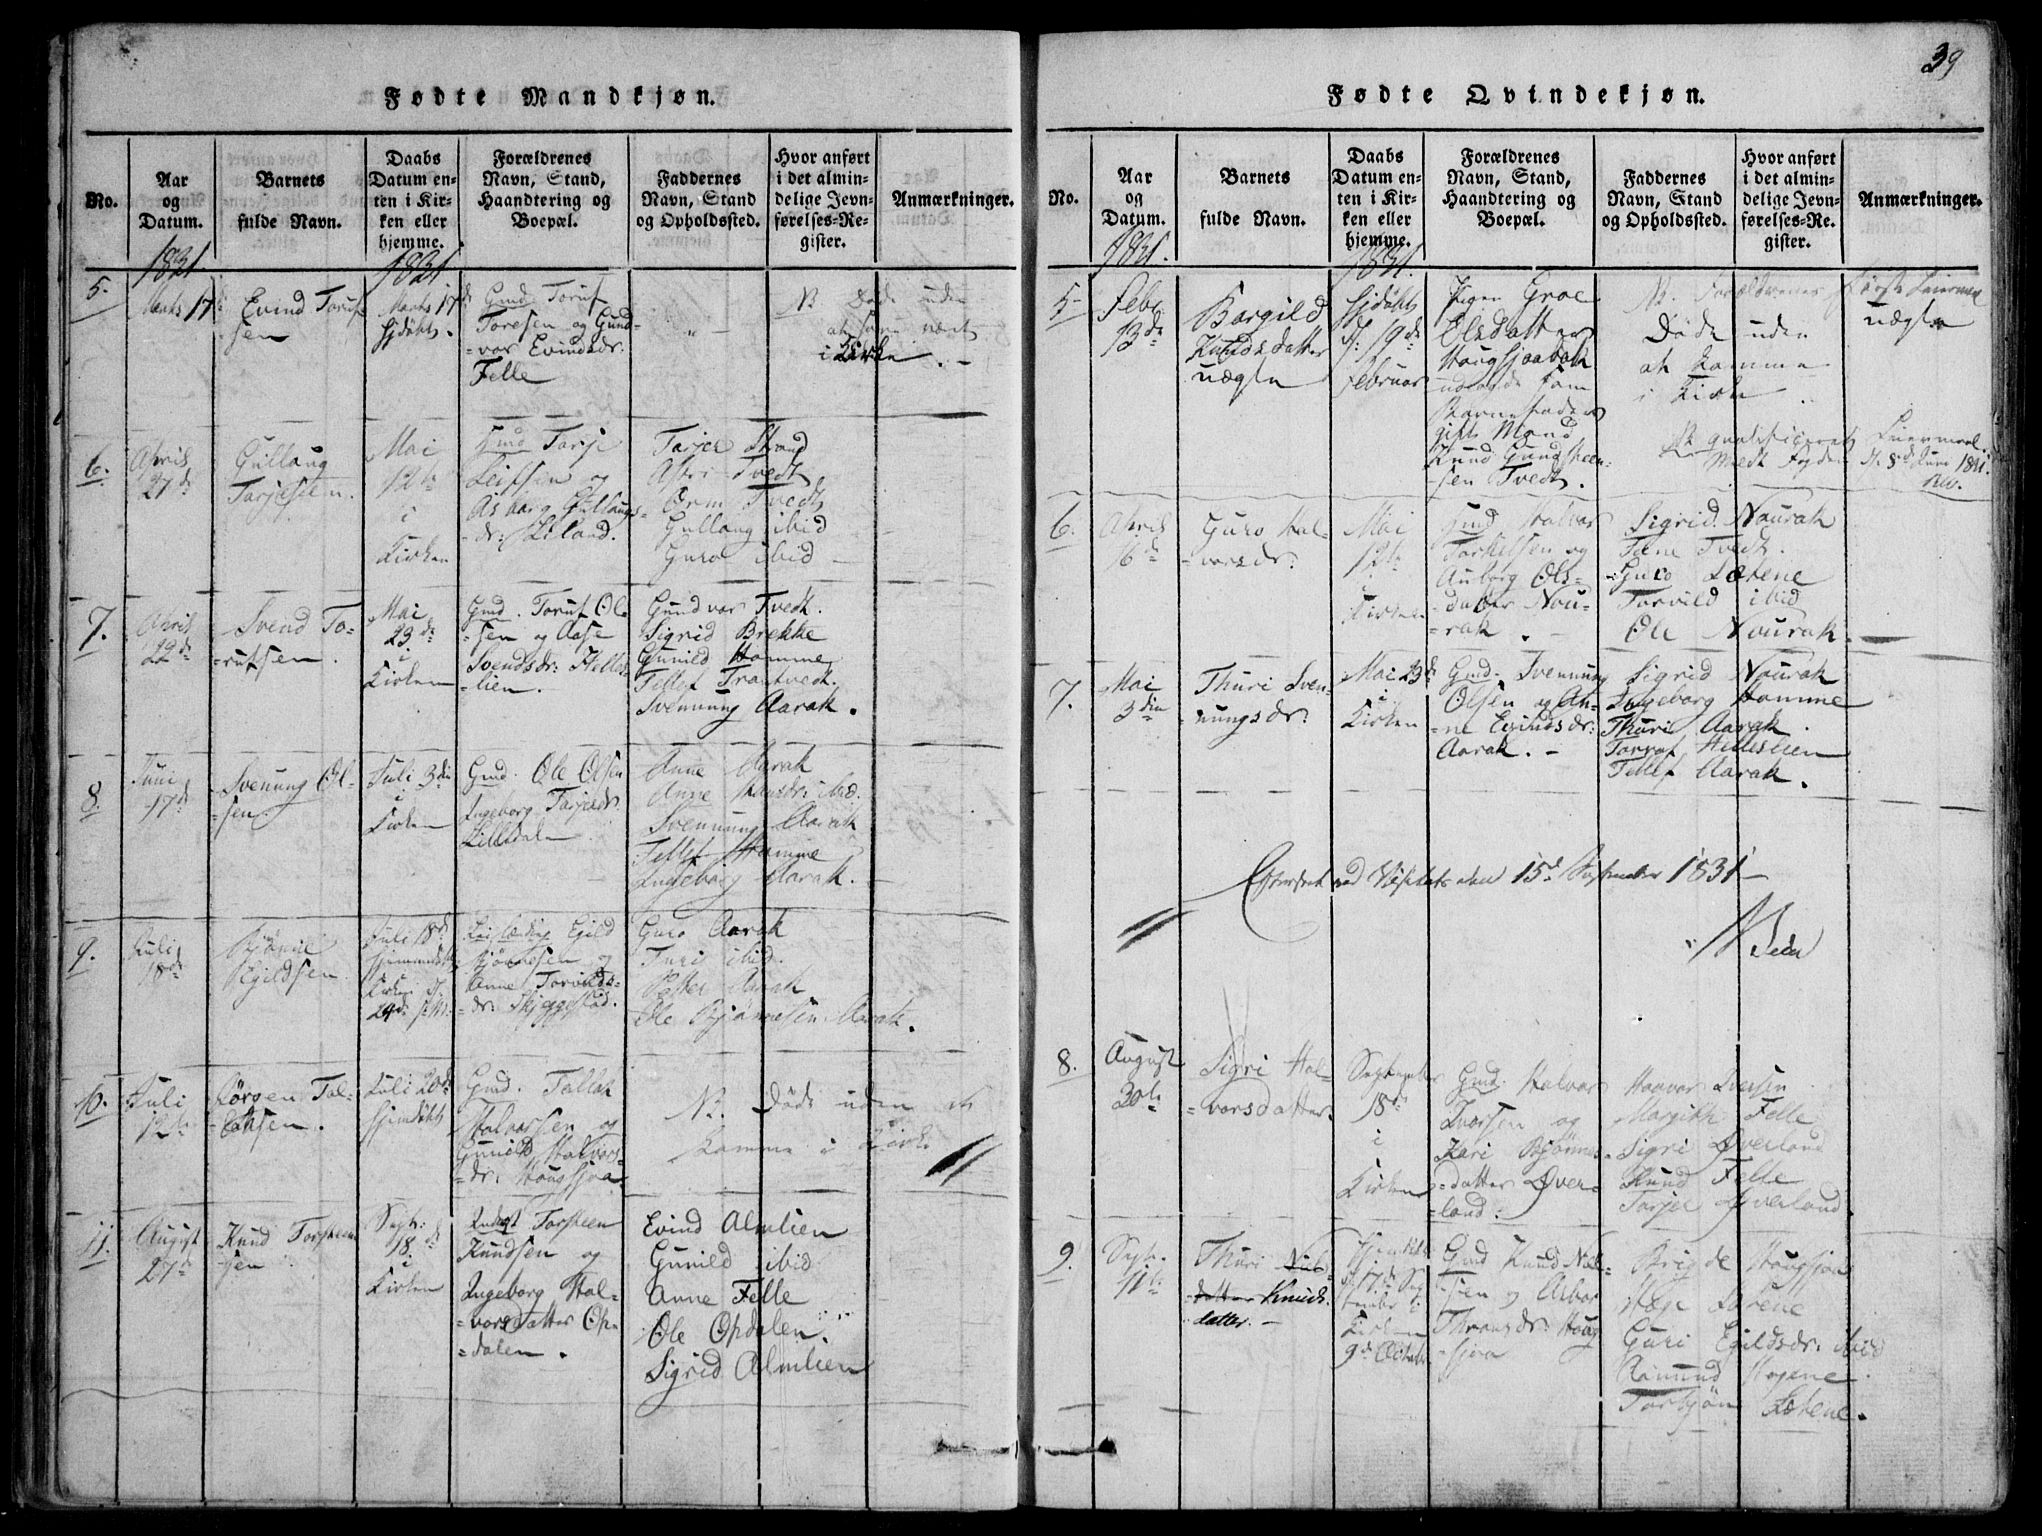 39
Fødte Mandkjøn.
No.
Aar
og
Datum.
Barnets
fulde Navn.
Daabs
Datum en-
ten i Kir-
ken eller
hjemme.
Forældrenes
Navn, Stand,
Haandtering og
Boepæl.
Faddernes
Navn, Stand
og Opholdssted.
Hvor anført
i det almin-
delige Jevn-
førelses-Re-
gister.
Anmærkninger.
1831
1831
5.
Marts 17
Eivind Toruf-
sen
Marts 17
Hjdøbt.
Gmd. Toruf
Toresen og Gund-
-vor Evindsdr.
Felle
NB. Døde uden
at have vært
i Kirke
6.
April
27d
Gullaug
Tarjesen.
Mai
12te
i
Kirken
Gmd Tarje
Leifsen og
Asborg Gullaugs-
-dr: Liland.
Tarjer Strand
Asbri Tvedt
Orm Tvedt
Gullaug ibid
Guro ibid
7.
April
22de
Svend To-
-rufsen.
Mai
23de
i
Kirken
Gmd. Toruf Ol-
-sen og Aase
Svendsdr: Helles-
-lien.
Gundvor Tvedt.
Sigrid Brekke
Gunild Homme
Tellef Trontvedt.
Svennung Aarak.
8.
Juni
17d
Svenung Ol-
-sen
Juli 3die
i
Kirken
Gmd. Ole Olsen
Ingeborg Tarjesdr.
Lillidalen
Anne Aarak
Anne Hansdr: ibid.
Svennung Aarak
Tellef Homme
Ingeborg Aarak.
9.
Juli
18de
Bjønne
Egildsen
Juli 18d
Hjemmedøbt
Kirken d.
29de
Egild
Bjønnesen og
Anne Torvilds-
-dr: Skjeggestad.
Guro Aarak
Turi ibid.
Petter Aarak
Ole Bjønnesen Aarak.
10.
Juli
12te
Jørgen Tal-
-laksen.
Juli 20de
Hjemdøbt
Gmd. Tallak
Halvorsen og
Gunild Halvors-
-dr: Hougsjaa
NB. Døde uden at
komme i Kirke
11.
August
27d
Knud Torsteen-
-sen
Sept:
18de
i
Kirken
Torsteen
Knudsen og
Ingeborg Hal-
-vorsdatter Op-
-dalen.
Evind Almlien
Gunild ibid
Anne Felle
Ole Opdalen.
Sigrid Almlien
Fødte Qvindekjøn.
No.
Aar
og
Datum.
Barnets
fulde Navn.
Daabs
Datum en-
ten i Kir-
ken eller
hjemme.
Forældrenes
Navn, Stand,
Haandtering og
Boepæl.
Faddernes
Navn, Stand
og Opholdssted.
Hvor anført
i det almin-
delige Jevn-
førelses-Re-
gister.
Anmærkninger.
1831.
1831.
5
Febr
13de
Borgild
Knudsdatter
uægte
Hjdøbt
d: 19de
Februar
Pigen Groe
Elsdatter
Hougsjaabak
udlagde som
Barnefader
gift Mand
Knud Gundsteen-
-sen Tvedt.
NB. Forældrenes
første Leiermaal
uægte
Døde uden
at komme
i Kirke
NB qualificeret Leiermaal
6.
April
6de
Guro Hal-
-vorsdr:
Mai
12te
i
Kirken
Gmd Halvor
Torkelsen og
Auborg Ols-
-datter Nou-
-rak.
Sigrid Nourak
Tone Tvedt.
Guro Løtene
Torvild ibid
Ole Nourak.
7.
Mai
3die
Thuri Sven-
-nungsdr:
Mai 23de
i
Kirken
Gmd. Svennung
Olsen og An-
-ne Egundsdr:
Aarak.
Sigrid Nourak
Ingeborg Homme
Thuri Aarak
Torruf Helleslien
Tellef Aarak.
Efterseet ved Visitats den 15de September 1831
8.
August
30te
Sigri Hal-
-vorsdatter.
September
18de
i
Kirken
Gmd. Halvor
Iversen og
Kari Bjønnes-
-datter Øver-
-land.
Haavor Iversen
Margith Felle
Sigri Øverland
Knud Felle
Tarjer Øverland.
9.
Sept.
11te
Thuri Nils-
-datter Knuds-
datter.
17de Sep-
tember i
Kirken
9de October
Gmd Knud Nil-
-sen og Asbor
Thronsdr: Houg-
-sjaa
Brigde Hougsjaa
Hæge Løtene
Guri Egildsdr. ibid
Aamund Hogene
Torbjøn Løtene.